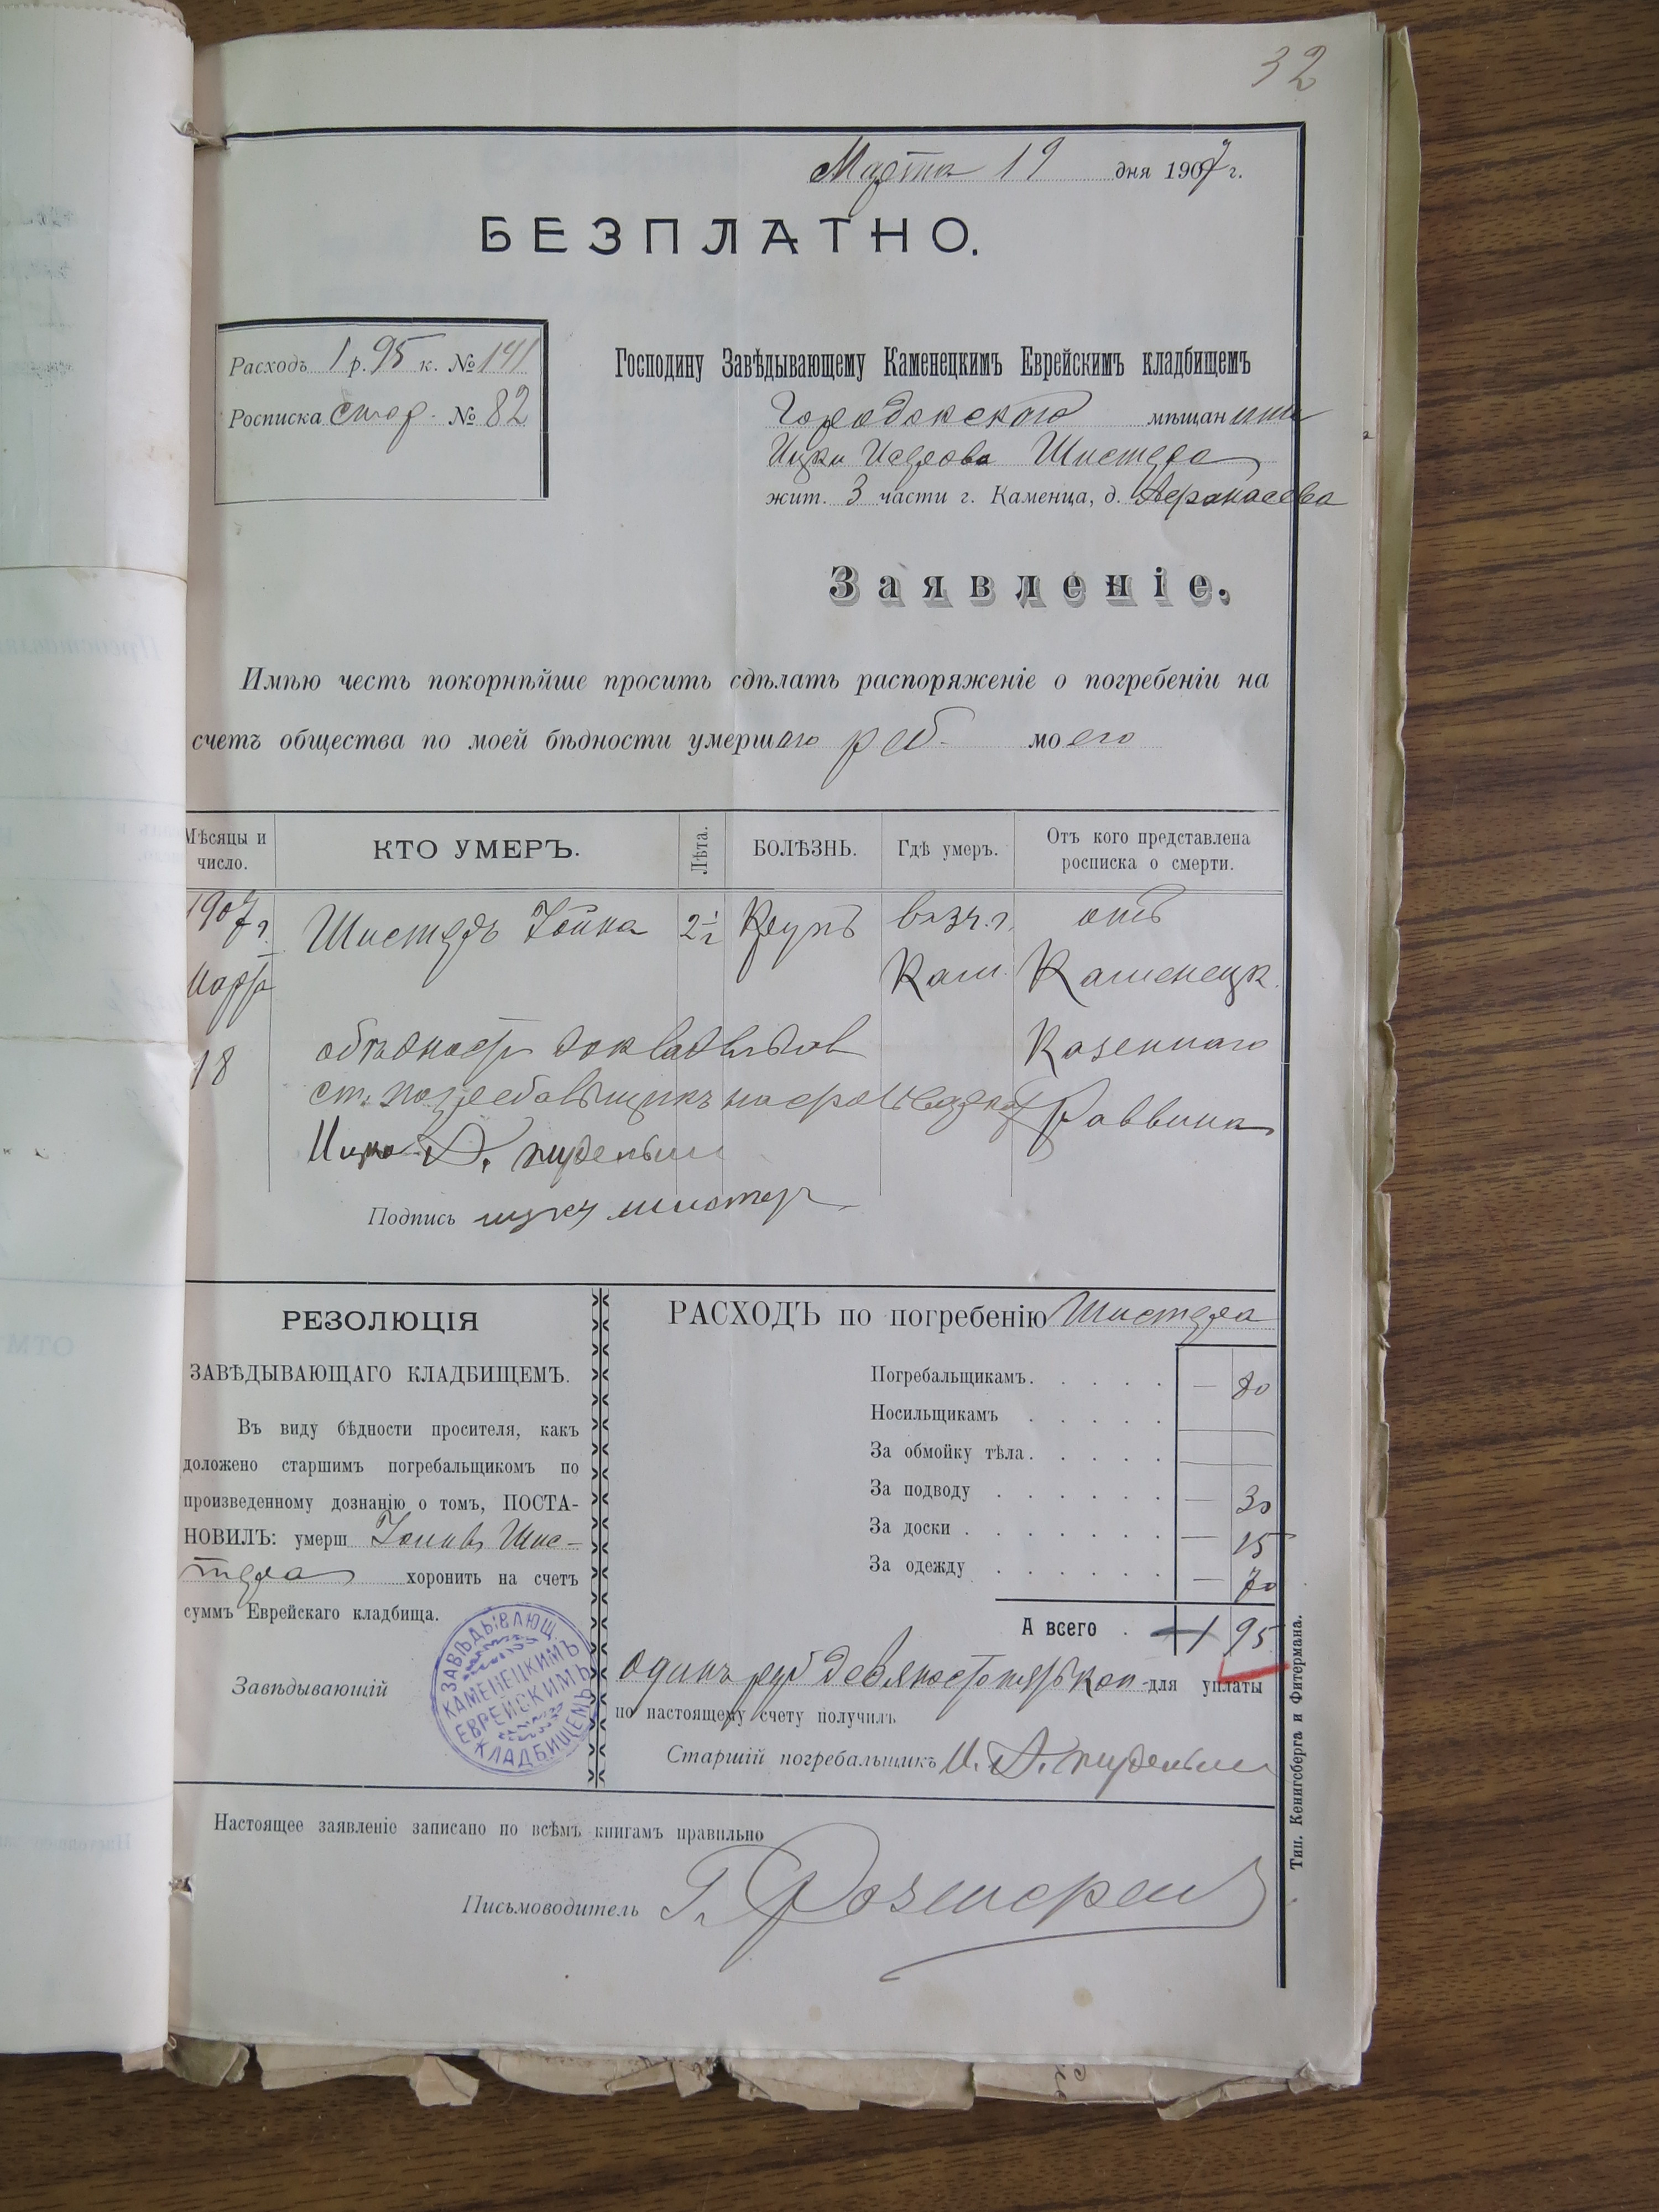 32
Марта 19 дня 1907 г.
БЕЗПЛАТНО.
Расходъ 1 р. 95 к. № 141
Росписка стар. № 82
Господину Завѣдывающему Каменецкимъ Еврейскимъ кладбищемъ
Городокского мѣщанина
Ицки Исрова Шистера
жит. 3 части г. Каменца, д. Афанасьева
Заявленіе.
Имѣю честь покорнѣйше просить сдѣлать распоряженіе о погребеніи на
счетъ общества по моей бѣдности умершаго реб. моего
Мѣсяцы и число. КТО УМЕРЪ. Лѣта. БОЛѢЗНЬ. Гдѣ умеръ. Отъ кого представлена росписка о смерти.
1907 г. Шистеръ 2½ Крупъ въ 3 ч. г. отъ
Кам. Каменецк.
18 Казеннаго
Раввина
Подпись ицко шистер
РЕЗОЛЮЦІЯ
ЗАВѢДЫВАЮЩАГО КЛАДБИЩЕМЪ.
Въ виду бѣдности просителя, какъ
доложено старшимъ погребальщикомъ по
произведенному дознанію о томъ, ПОСТА-
НОВИЛЪ: умерш Шис-
тера хоронить на счетъ
суммъ Еврейскаго кладбища.
Завѣдывающій
ЗАВѢДЫВАЮЩ. КАМЕНЕЦКИМЪ ЕВРЕЙСКИМЪ КЛАДБИЩЕМЪ
РАСХОДЪ по погребенію Шистера
Погребальщикамъ. . . . . — 80
Носильщикамъ . . . . .
За обмойку тѣла. . . . .
За подводу . . . . . . — 30
За доски . . . . . . . — 15
За одежду . . . . . . — 70
А всего . 1 95
одинъ руб девяносто пять коп для уплаты
по настоящему счету получилъ
Старшій погребальщикъ И. Д.
Настоящее заявленіе записано по всѣмъ книгамъ правильно
Письмоводитель Г.
Тип. Кенигсберга и Фитермана.